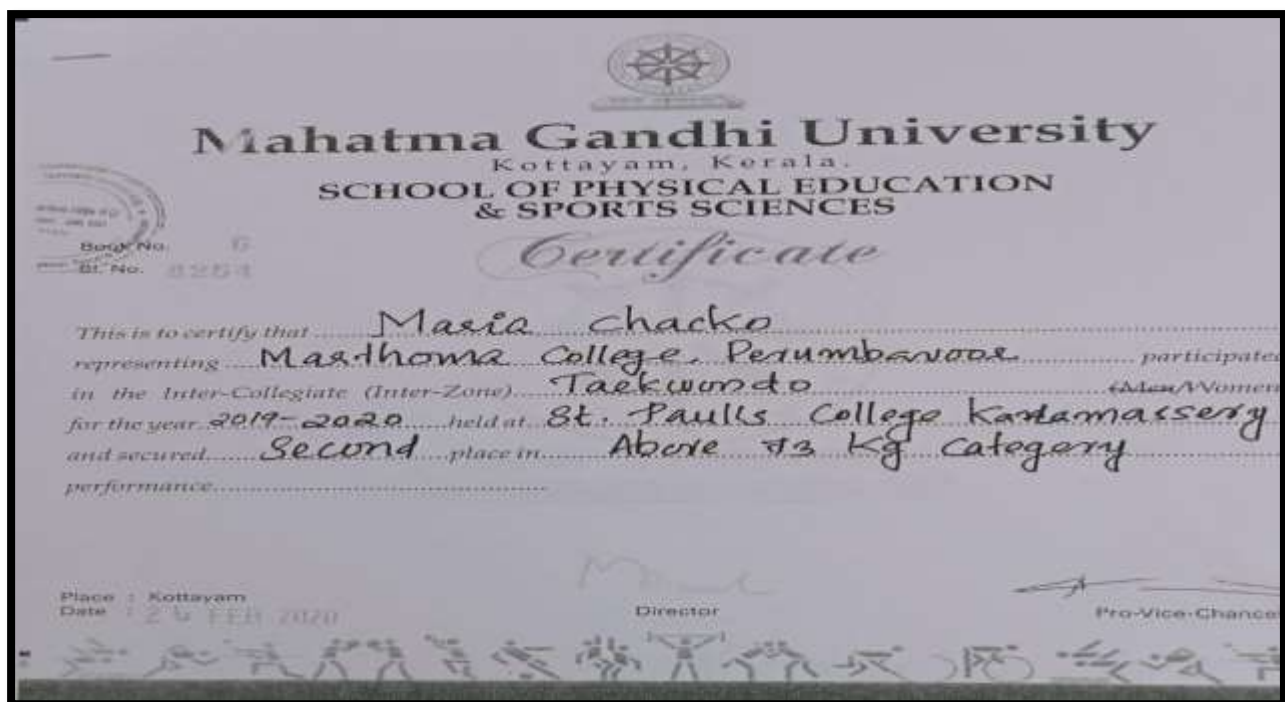 Mahatma Gandhi University
Kottayam, Kerala.
SCHOOL OF PHYSICAL EDUCATION
& SPORTS SCIENCES
Book No. 6
Sl. No.
Certificate
This is to certify that Maria Chacko
representing Marthoma College, Perumbavoor participated
in the Inter-Collegiate (Inter-Zone) Taekwondo (Men/Women
for the year 2019-2020 held at St. Paulls College Kalamassery
and secured Second place in Above 73 Kg Category
performance
Place : Kottayam
Date : FEB 2020
Director
Pro-Vice-Chance